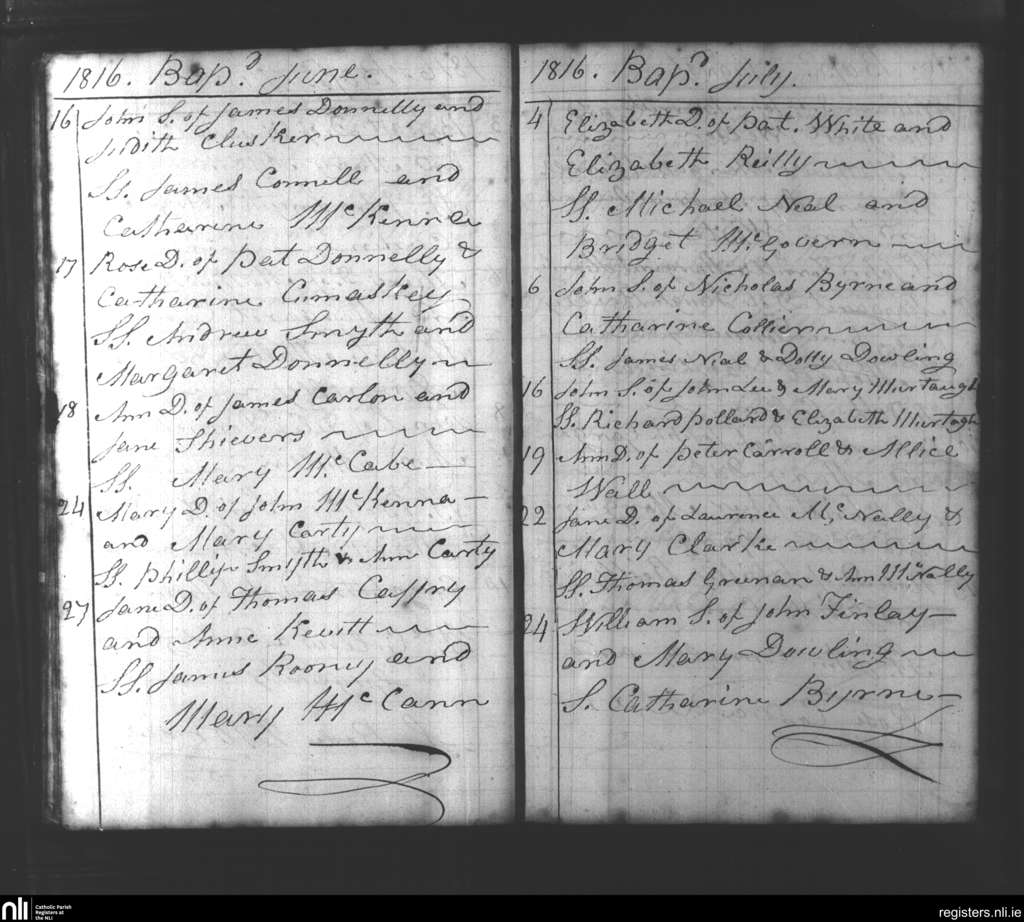 1816. Bap.d June.
16 John S. of James Donnelly and
Judith Clusker
SS. James Connell and
Catharine McKenna
17 Rose D. of Pat Donnelly &
Catharine Cumaskey
SS. Andrew Smyth and
Margaret Donnelly
18 Ann D. of James Carlon and
Jane Shievers
SS. Mary McCabe
24 Mary D. of John McKenna
and Mary Carty
SS. Phillip Smyth & Ann Carty
27 Jane D. of Thomas Caffry
and Anne Kewitt
SS. James Rooney and
Mary McCann
1816. Bap.d July.
4 Elizabeth D. of Pat. White and
Elizabeth Reilly
SS. Michael Neal and
Bridget McGovern
6 John S. of Nicholas Byrne and
Catharine Collier
SS. James Nial & Dolly Dowling
16 John S. of John Lee & Mary Murtaugh
SS. Richard Pollard & Elizabeth Murtagh
19 Ann D. of Peter Carroll & Allice
Wall
22 Jane D. of Laurence McNally &
Mary Clarke
SS. Thomas Greenan & Ann McNally
24 William S. of John Finlay
and Mary Dowling
S. Catharine Byrne
nli Catholic Parish
Registers at
the NLI
registers.nli.ie